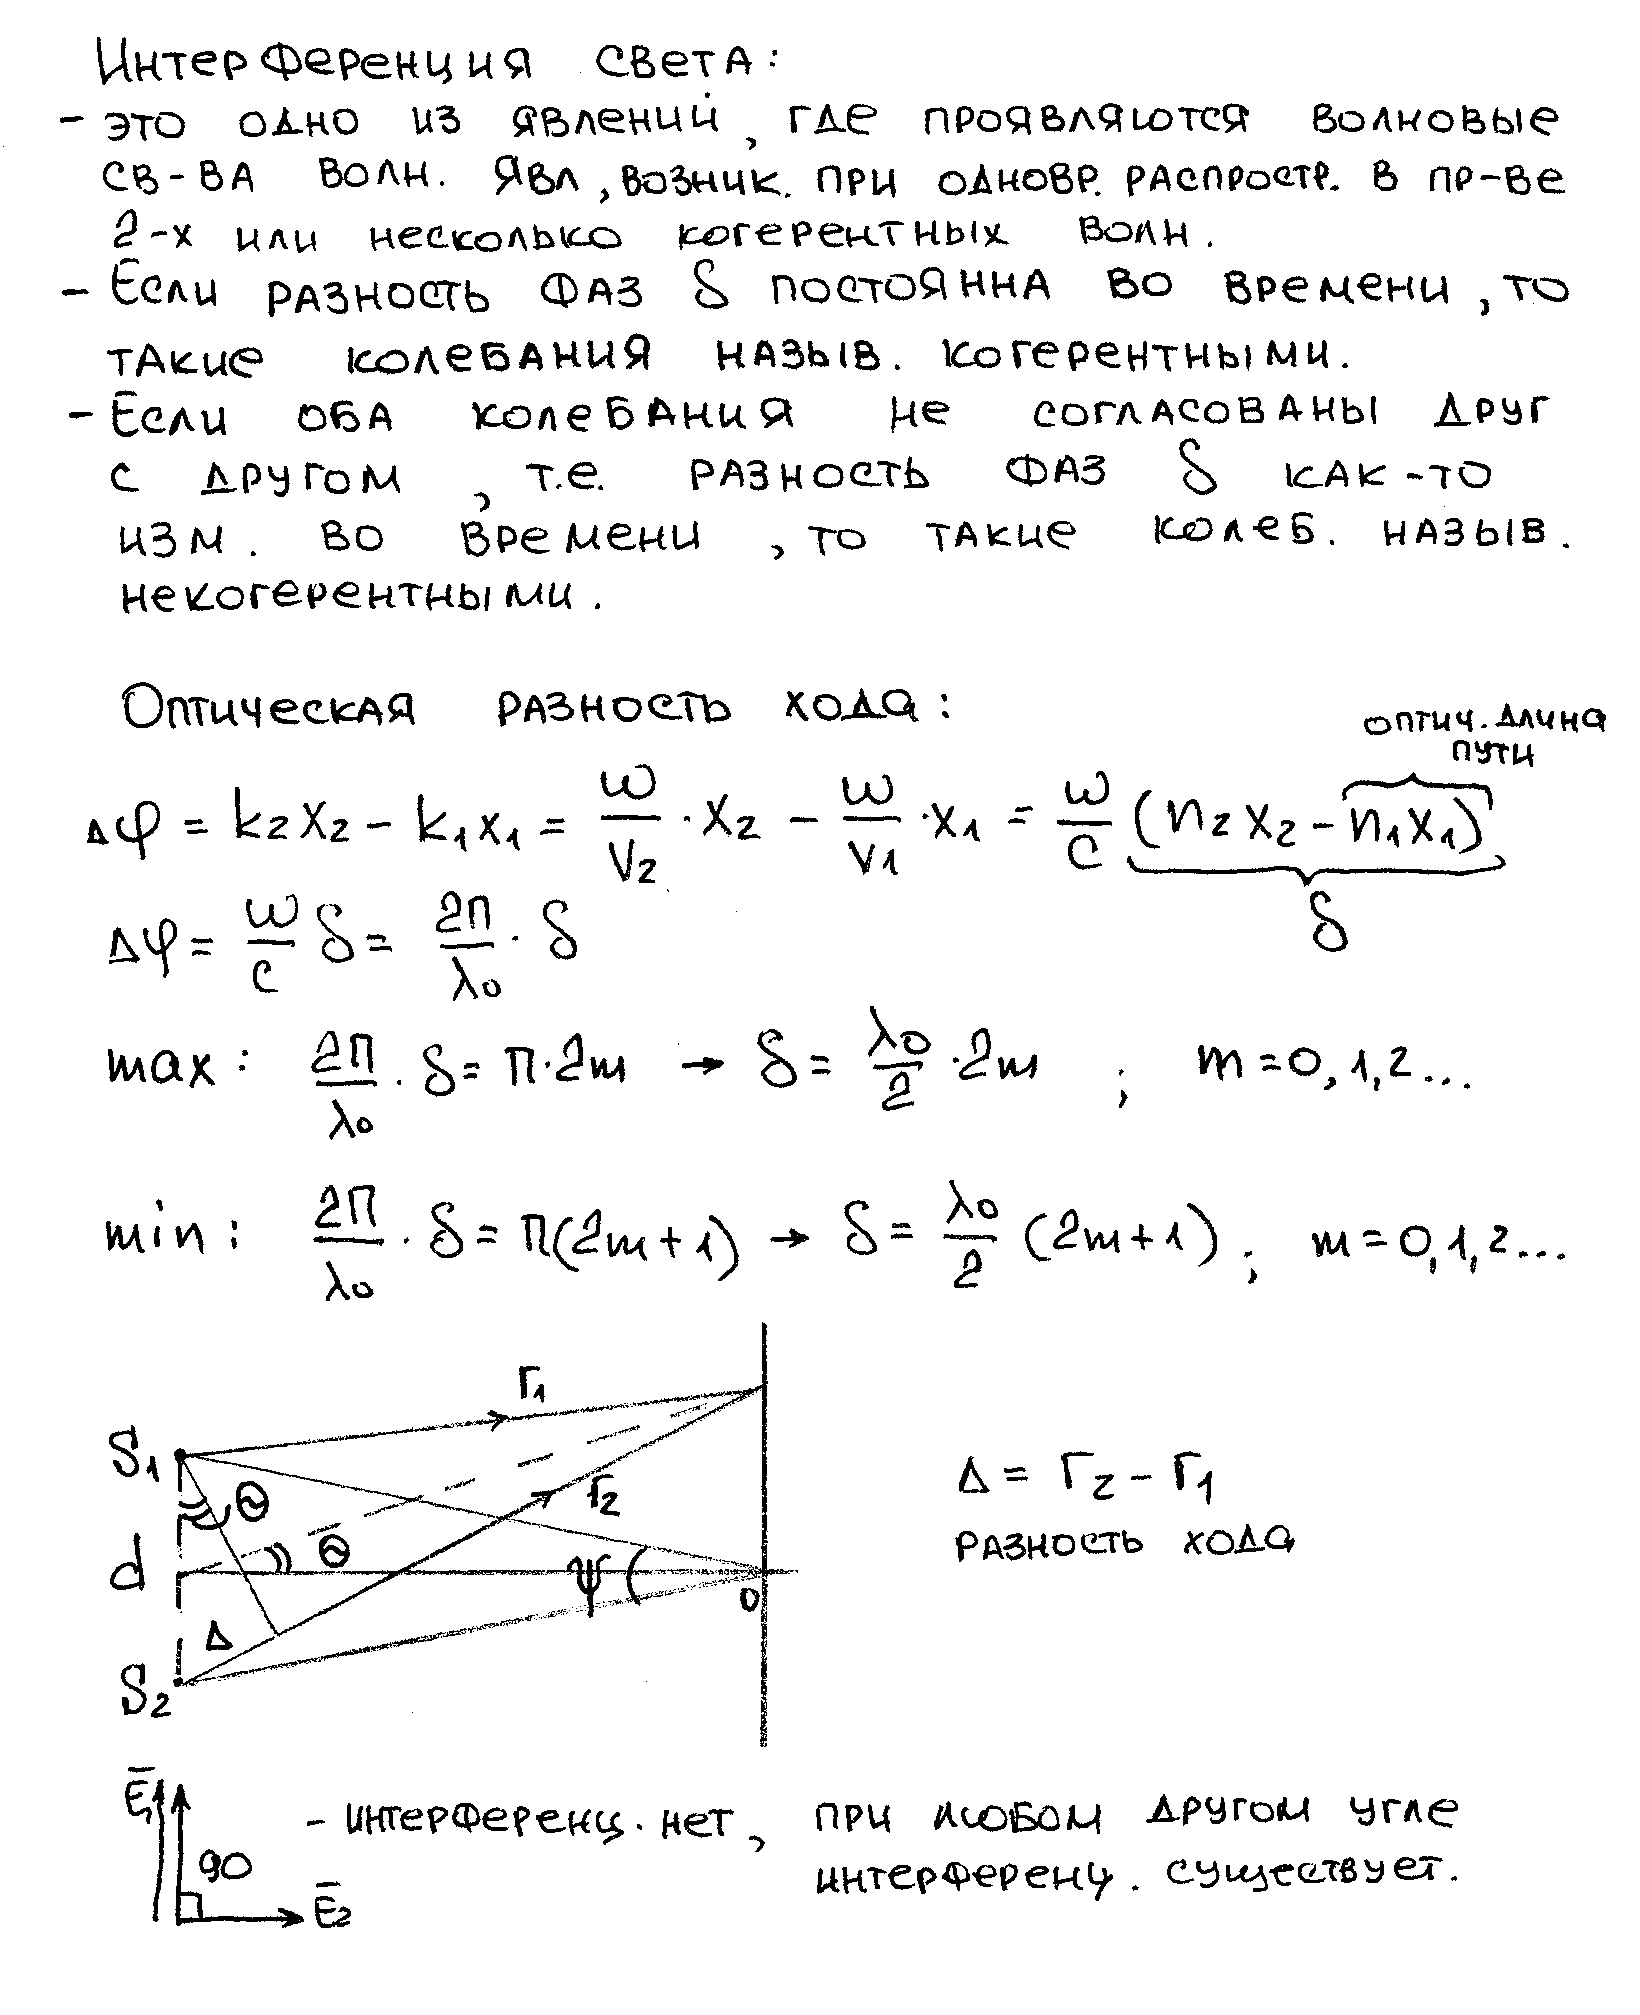 Интерференция света:
- это одно из явлений, где проявляются волновые
св-ва волн. Явл, возник. при одновр. распростр. в пр-ве
2-х или несколько когерентных волн.
- Если разность фаз δ постоянна во времени, то
такие колебания назыв. когерентными.
- Если оба колебания не согласованы друг
с другом, т.е. разность фаз δ как-то
изм. во времени, то такие колеб. назыв.
некогерентными.
Оптическая разность хода:
оптич. длина
пути
Δφ = k₂x₂ - k₁x₁ = ω/v₂ · x₂ - ω/v₁ · x₁ = ω/c (n₂x₂ - n₁x₁)
δ
Δφ = ω/c δ = 2π/λ₀ · δ
max: 2π/λ₀ · δ = π·2m → δ = λ₀/2 · 2m ; m = 0, 1, 2...
min: 2π/λ₀ · δ = π(2m+1) → δ = λ₀/2 (2m+1); m = 0, 1, 2...
r₁
S₁
θ
r₂
Δ = r₂ - r₁
разность хода
d
θ
ψ
0
Δ
S₂
E̅₁
90
E̅₂
- интерференц. нет, при любом другом угле
интерференц. существует.